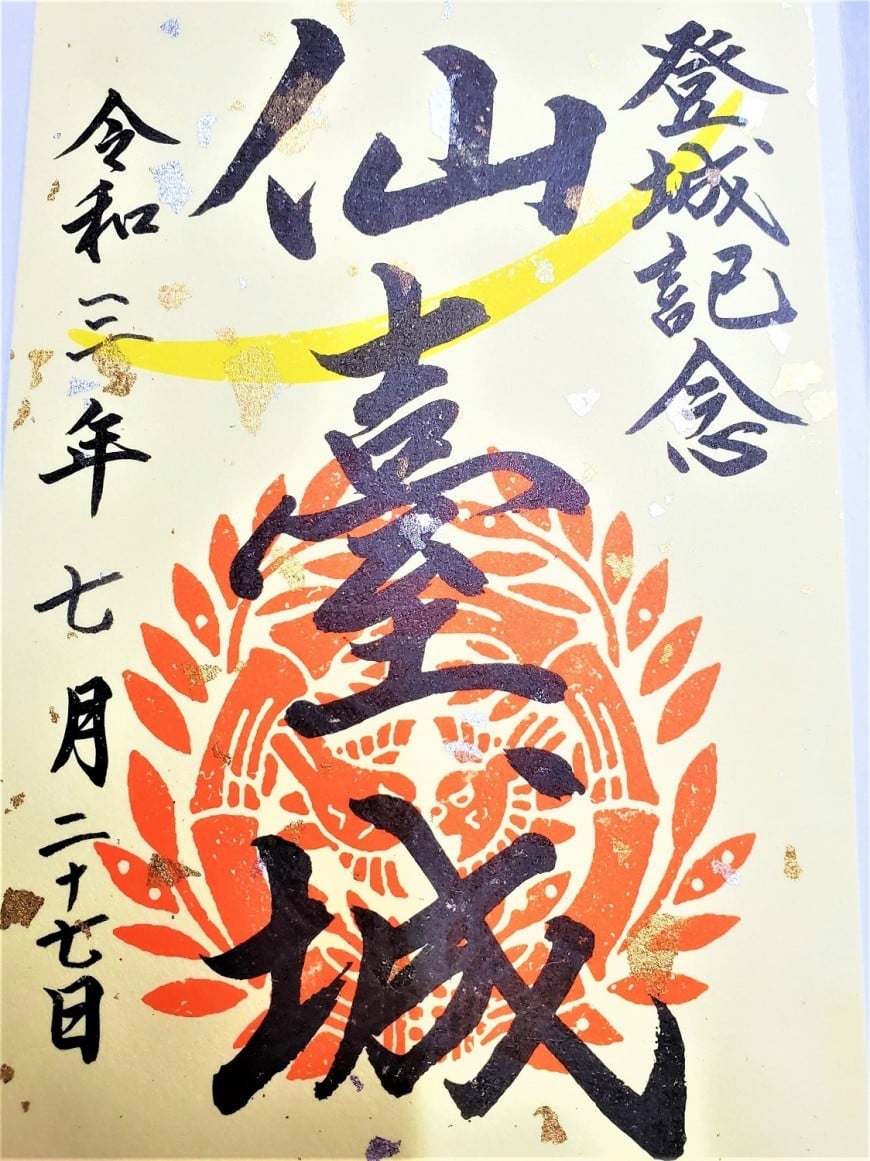 登城記念
仙臺城
令和三年七月二十七日